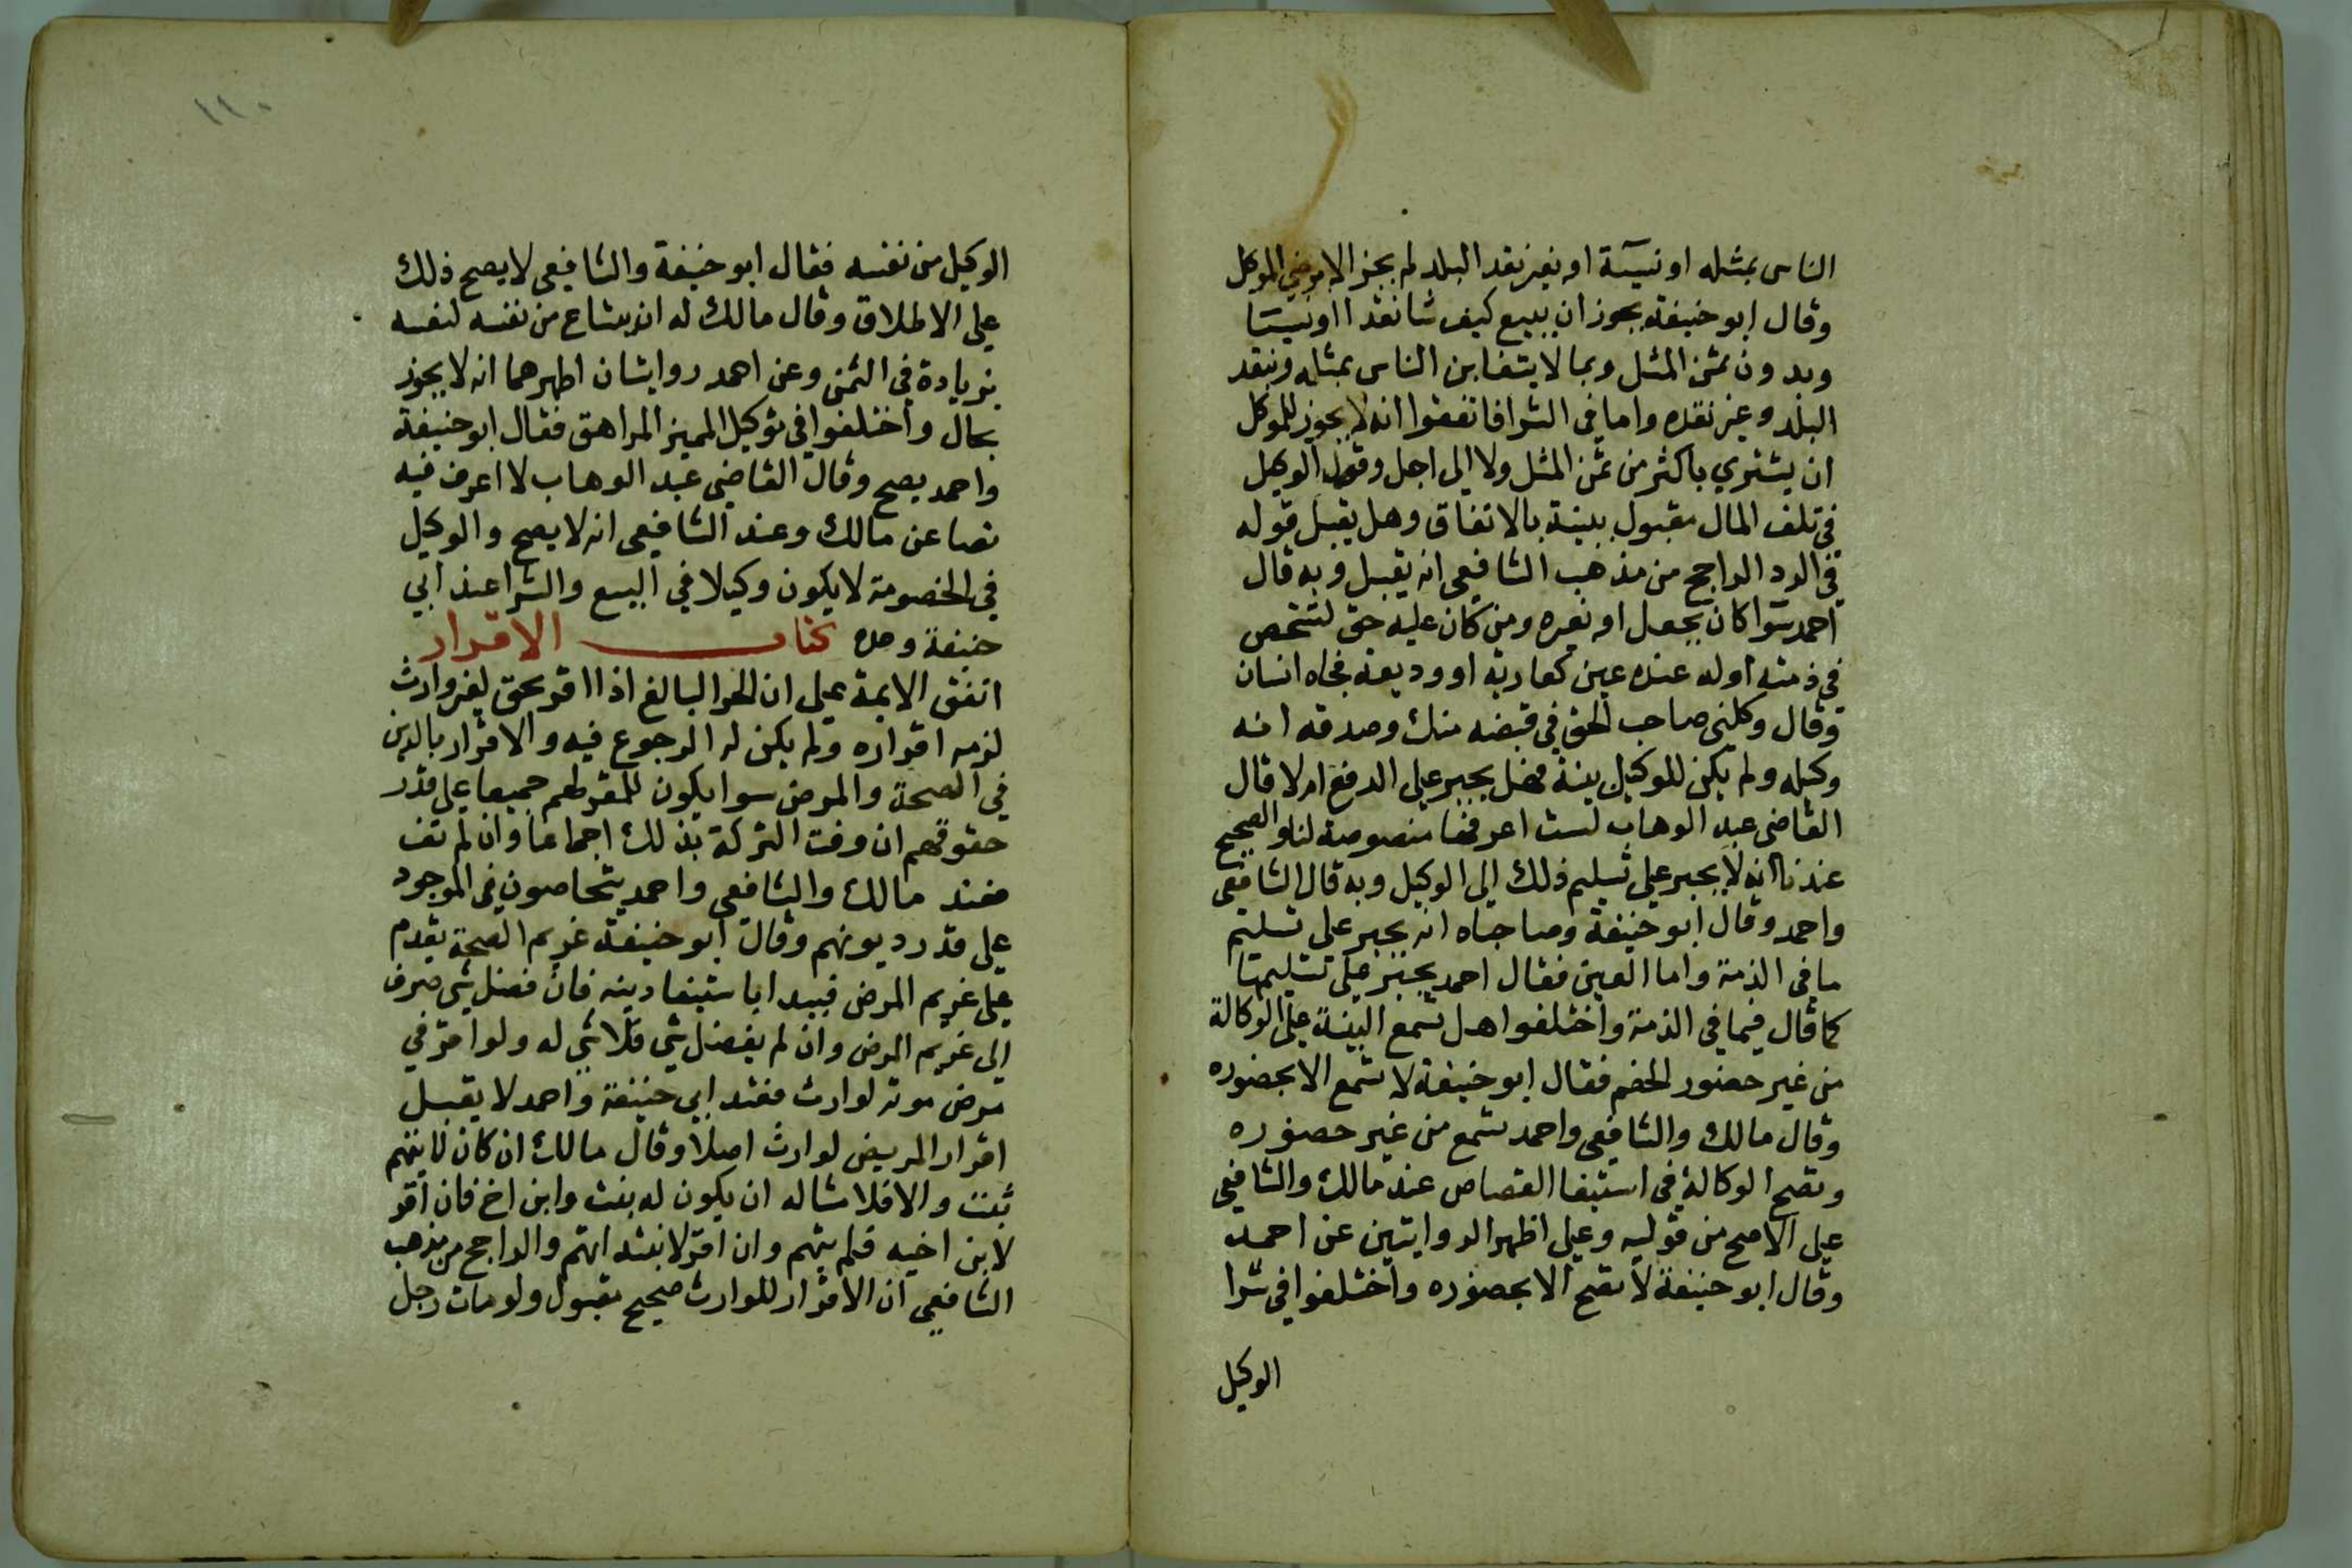 الناس بمثله او نسيئة او بغير نقد البلد لم يجز الا برضى الموكل
وقال ابو حنيفة يجوز ان يبيع كيف شا نقدا او نسيئا
وبدون ثمن المثل وبما لا يتغابن الناس بمثله وبنقد
البلد وغير نقده واما في الشرا فاتفقوا انه لا يجوز للموكل
ان يشتري باكثر من ثمن المثل ولا الى اجل وقول الوكيل
في تلف المال مقبول ببينة بالاتفاق وهل يقبل قوله
في الرد الراجح من مذهب الشافعي انه يقبل وبه قال
احمد سوا كان بجعل او بغيره ومن كان عليه حق لشخص
في ذمته او له عنده عين كعارية او وديعة فجاه انسان
وقال وكلني صاحب الحق في قبضه منك وصدقه انه
وكيله ولم يكن للوكيل بينة فهل يجبر على الدفع ام لا قال
القاضي عبد الوهاب لست اعرفها منصوصة لنا والصحيح
عندنا انه لا يجبر على تسليم ذلك الى الوكيل وبه قال الشافعي
واحمد وقال ابو حنيفة وصاحباه انه يجبر على تسليم
ما في الذمة واما العين فقال احمد يجبر على تسليمها
كما قال فيما في الذمة واختلفوا هل تسمع البينة على الوكالة
من غير حضور الخصم فقال ابو حنيفة لا تسمع الا بحضوره
وقال مالك والشافعي واحمد تسمع من غير حضوره
وتصح الوكالة في استيفا القصاص عند مالك والشافعي
على الاصح من قوليه وعلى اظهر الروايتين عن احمد
وقال ابو حنيفة لا تصح الا بحضوره واختلفوا في شرا
الوكيل
١١٠
الوكيل من نفسه فقال ابو حنيفة والشافعي لا يصح ذلك
على الاطلاق وقال مالك له ان يبتاع من نفسه لنفسه
بزيادة في الثمن وعن احمد روايتان اظهرهما انه لا يجوز
بحال واختلفوا في توكيل المميز المراهق فقال ابو حنيفة
واحمد يصح وقال القاضي عبد الوهاب لا اعرف فيه
نصا عن مالك وعند الشافعي انه لا يصح والوكيل
في الخصومة لا يكون وكيلا في البيع والشرا عند ابي
حنيفة وحده كتاب الاقرار
اتفق الايمة على ان الحر البالغ اذا اقر بحق لغير وارث
لزمه اقراره ولم يكن له الرجوع فيه والاقرار بالدين
في الصحة والمرض سوا يكون للمقر لهم جميعا على قدر
حقوقهم ان وفت التركة بذلك اجماعا وان لم تف
فعند مالك والشافعي واحمد يتحاصون في الموجود
على قدر ديونهم وقال ابو حنيفة غريم الصحة يقدم
على غريم المرض فيبدا باستيفا دينه فان فضل شي صرف
الى غريم المرض وان لم يفضل شي فلا شي له ولو اقر في
مرض موته لوارث فعند ابي حنيفة واحمد لا يقبل
اقرار المريض لوارث اصلا وقال مالك ان كان لا يتهم
ثبت والا فلا مثاله ان يكون له بنت وابن اخ فان اقر
لابن اخيه فلم يتهم وان اقر لابنته اتهم والراجح من مذهب
الشافعي ان الاقرار للوارث صحيح مقبول ولو مات رجل